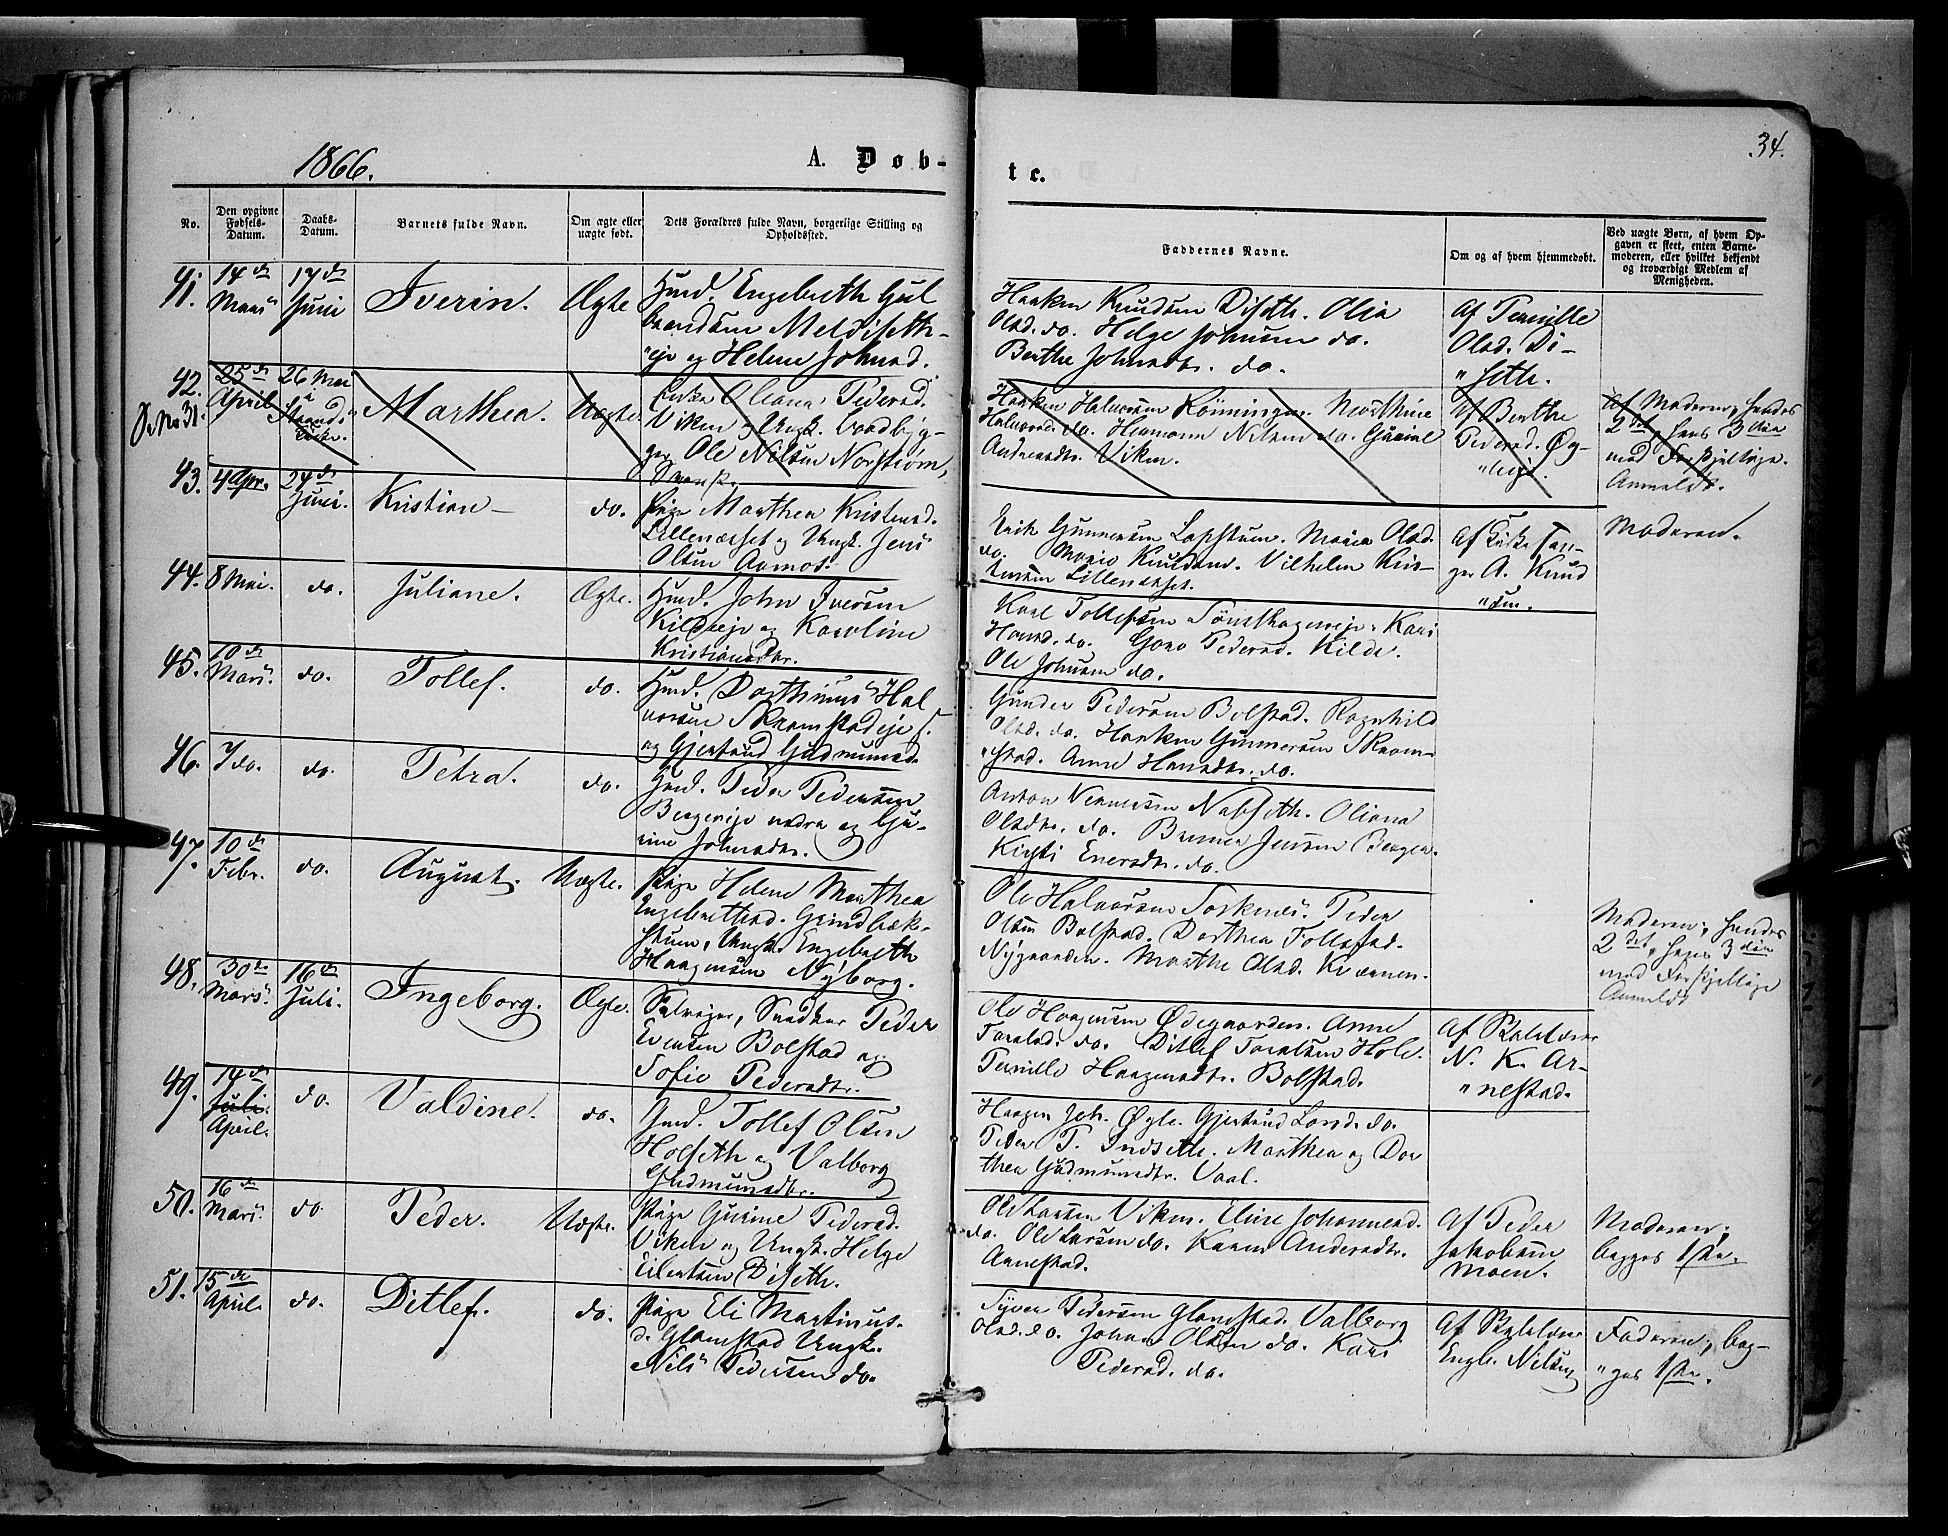 1866.
A. Døb-
te.
34.
No.
Den opgivne Fødsels-Datum.
Daabs-Datum.
Barnets fulde Navn.
Om ægte eller uægte født.
Dets Forældres fulde Navn, borgerlige Stilling og Opholdsted.
Faddernes Navne.
Om og af hvem hjemmedøbt.
Ved uægte Børn, af hvem Op-
gaven er skeet, enten Barne-
moderen, eller hvilket bekjendt
og troværdigt Medlem af
Menigheden.
41. 14de Mars 17de Juni Iverin. Ægte
Huusm. Engebreth Gul
brandsen Meldiseth-
eje og Helene Johnsd.
Haaken Knudsen Diseth. Olia
Olsd. do. Helge Johnsen do.
Berthe Johnsdtr. do.
Af Pernille
Olsd. Di-
"seth.
42. 25de April 26 Mai Strands Kirke. Marthea. Uægte.
Oliana Pedersd.
Viken og Ungk.
Ole Nilsen Norstrøm,
Svensk.
Haaken Halvorsen Rönningen. Marthine
Halvorsd. do. Hermann Nilsen do. Gurine
Andersdtr. Viken.
Af Berthe
Pedersd. Øg-
Af Moderen; hendes
2det, hans 3die
med Forskjellige.
Anmeldt.
43. 4 Apr. 24de Juni. Kristian do.
Pige Marthea Kristensd.
Lillenæsset og Ungk. Jens
Olsen Aamot.
Erik Gunnersen Marie Olsd.
do. Marie Knudsd. Vilhelm Kris-
tensen Lillenæsset.
Af Kirkesan-
ger A. Knud
"sen.
Moderen.
44. 8 Mai. do. Juliane. Ægte.
Huusm. John Iversen
Kildeeje og Karoline
Kristiansdtr.
Karl Tollefsen Kari
Hansd. do. Goro Pedersd. Kilde.
Ole Johnsen do.
45. 10de Mars. do. Tollef. do.
Huusm. Dorthinus Hal
vorsen Skramstadeje
og Gjertrud Gudmunsd.
Gunder Pedersen Bolstad. Ragnhild
Olsd. do. Haaken Gunnersen Skram-
"stad. Anne Hansdtr. do.
46. 7 do. do. Petra. do.
Huusm. Peder Pedersen
Bergeeje nedre og Gu-
rine Johnsdtr.
Anton Oliana
Olsdtr. do. Jensen Bergen.
Kirsti Enersdtr. do.
47. 10de Febr. do. August. Uægte.
Pige Helene Marthea
Engebrethsd. Grindbæk-
stuen, Ungk. Engebreth
Haagensen Nyborg.
Ole Halvorsen Peder
Olsen Bolstad. Dorthea Tollefsd.
Nygaarden. Marthe Olsd. Kværnen.
Moderen; hendes
2det, hans 3die
med Forskjellige
Anmeldt
48. 30te Mars. 16de Juli. Ingeborg. Ægte.
Selvejer, Snedker Peder
Evensen Bolstad og
Sofie Pedersdtr.
Ole Haagensen Ødegaarden. Anne
do. Ditlef Hole.
Pernille Haagensdtr. Bolstad.
Af Skolelærer
N. K. Ar-
"nestad.
49. 14de Juli. April. do. Valdine. do.
Huusm. Tollef Olsen
Holseth og Valborg
Gudmunsdtr.
Haagen Joh. Øgle. Gjertrud Larsd. do.
Peder P. Indseth. Marthea og Dor
thea Gudmunsdtr. Vaal.
50. 16de Mars. do. Peder. Uægte.
Pige Gurine Pedersd.
Viken og Ungk. Helge
Eilertsen Diseth.
Ole Larsen Viken. Eline Johannesd.
do. Ole Larsen do. Karen Andersdtr.
Arnestad.
Af Peder
Jakobsen
Moen.
Moderen;
begges 1ste.
51. 15de April. do. Ditlef. do.
Pige Eli Martinus-
d. Glamstad Ungk.
Nils Pedersen do.
Syver Pedersen Glamstad. Valborg
Olsd. do. Johan Olsen do. Kari
Pedersd. do.
Af Skolelærer
Engb. Nilsen
Faderen; beg-
"ges 1ste.